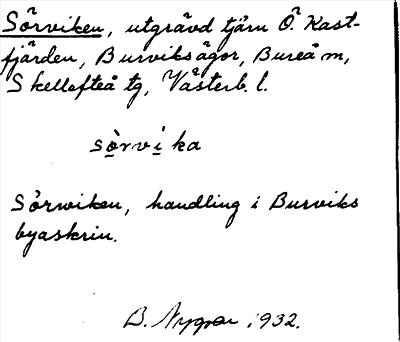 Sörviken, utgrävd tjärn Ö. Kast-
fjärden, Burviksägor, Bureå m,
Skellefteå tg, Västerb. l.
sörvika
Sörwiken, handling i Burviks
byaskrin.
B. Nygren 1932.